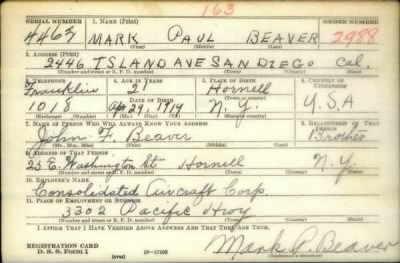 163
SERIAL NUMBER 1. NAME (Print) ORDER NUMBER
4467 MARK PAUL BEAVER 2988
(First) (Middle) (Last)
2. ADDRESS (Print)
2446 ISLAND AVE SAN DIEGO Cal.
(Number and street or R. F. D. number) (Town) (County) (State)
3. TELEPHONE 4. AGE IN YEARS 5. PLACE OF BIRTH 6. COUNTRY OF CITIZENSHIP
Franklin 21 Hornell
DATE OF BIRTH (Town or county)
1018 Apr 29, 1919 N.Y. U.S.A
(Mo.) (Day) (Yr.) (State or country)
7. NAME OF PERSON WHO WILL ALWAYS KNOW YOUR ADDRESS 8. RELATIONSHIP OF THAT PERSON
John F. Beaver Brother
(Mr., Mrs., Miss) (First) (Middle) (Last)
9. ADDRESS OF THAT PERSON
25 E. Washington St Hornell N.Y.
(Number and street or R. F. D. number) (Town) (County) (State)
10. EMPLOYER'S NAME
Consolidated Aircraft Corp
11. PLACE OF EMPLOYMENT OR BUSINESS
3302 Pacific Hwy
(Number and street or R. F. D. number) (Town) (County) (State)
I AFFIRM THAT I HAVE VERIFIED ABOVE ANSWERS AND THAT THEY ARE TRUE.
REGISTRATION CARD
D. S. S. Form 1 (over) Mark P. Beaver
(Registrant's signature)